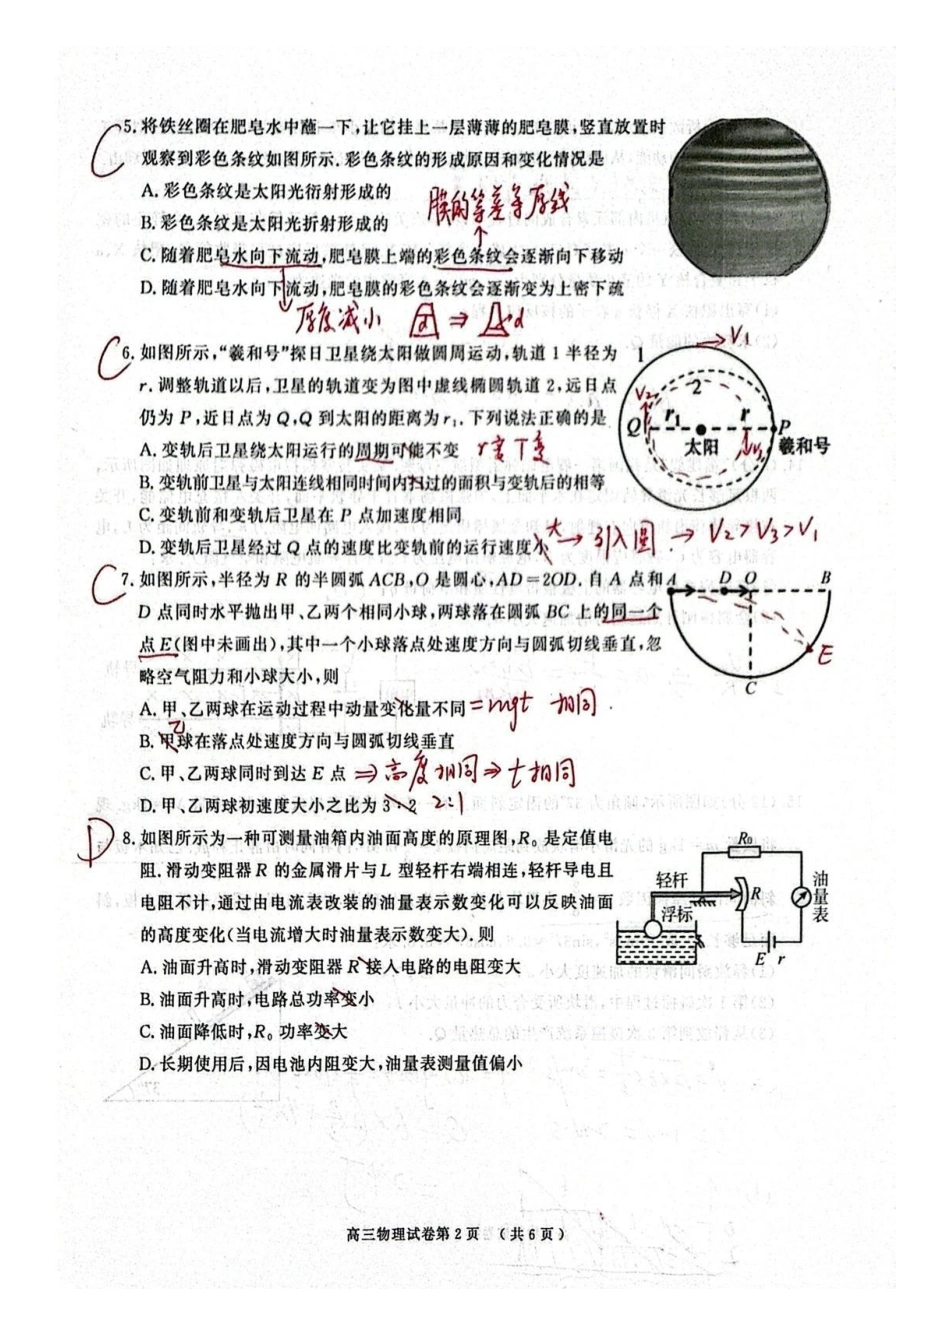 C
5. 将铁丝圈在肥皂水中蘸一下,让它挂上一层薄薄的肥皂膜,竖直放置时
观察到彩色条纹如图所示. 彩色条纹的形成原因和变化情况是
A. 彩色条纹是太阳光衍射形成的
B. 彩色条纹是太阳光折射形成的
膜的等差等厚线
C. 随着肥皂水向下流动,肥皂膜上端的彩色条纹会逐渐向下移动
D. 随着肥皂水向下流动,肥皂膜的彩色条纹会逐渐变为上密下疏
厚度减小
C
6. 如图所示,“羲和号”探日卫星绕太阳做圆周运动,轨道 1 半径为
r. 调整轨道以后,卫星的轨道变为图中虚线椭圆轨道 2,远日点
仍为 P,近日点为 Q,Q 到太阳的距离为 r₁. 下列说法正确的是
A. 变轨后卫星绕太阳运行的周期可能不变 r变 T变
B. 变轨前卫星与太阳连线相同时间内扫过的面积与变轨后的相等
C. 变轨前和变轨后卫星在 P 点加速度相同
D. 变轨后卫星经过 Q 点的速度比变轨前的运行速度小 大 → 引入圆 → V₂>V₃>V₁
1 V₁
V₂ 2
Q r₁ r P
太阳 V₃ 羲和号
C
7. 如图所示,半径为 R 的半圆弧 ACB,O 是圆心,AD=2OD. 自 A 点和
D 点同时水平抛出甲、乙两个相同小球,两球落在圆弧 BC 上的同一个
点 E(图中未画出),其中一个小球落点处速度方向与圆弧切线垂直,忽
略空气阻力和小球大小,则
A. 甲、乙两球在运动过程中动量变化量不同 =mgt 相同
乙
B. 甲球在落点处速度方向与圆弧切线垂直
C. 甲、乙两球同时到达 E 点 ⇒ 高度相同 ⇒ t相同
D. 甲、乙两球初速度大小之比为 3∶2 2:1
A D O B
E
C
D
8. 如图所示为一种可测量油箱内油面高度的原理图,R₀ 是定值电
阻. 滑动变阻器 R 的金属滑片与 L 型轻杆右端相连,轻杆导电且
电阻不计,通过由电流表改装的油量表示数变化可以反映油面
的高度变化(当电流增大时油量表示数变大). 则
A. 油面升高时,滑动变阻器 R 接入电路的电阻变大
B. 油面升高时,电路总功率变小
C. 油面降低时,R₀ 功率变大
D. 长期使用后,因电池内阻变大,油量表测量值偏小
R₀
轻杆
R
油量表
浮标
E r
高三物理试卷第 2 页 (共 6 页)